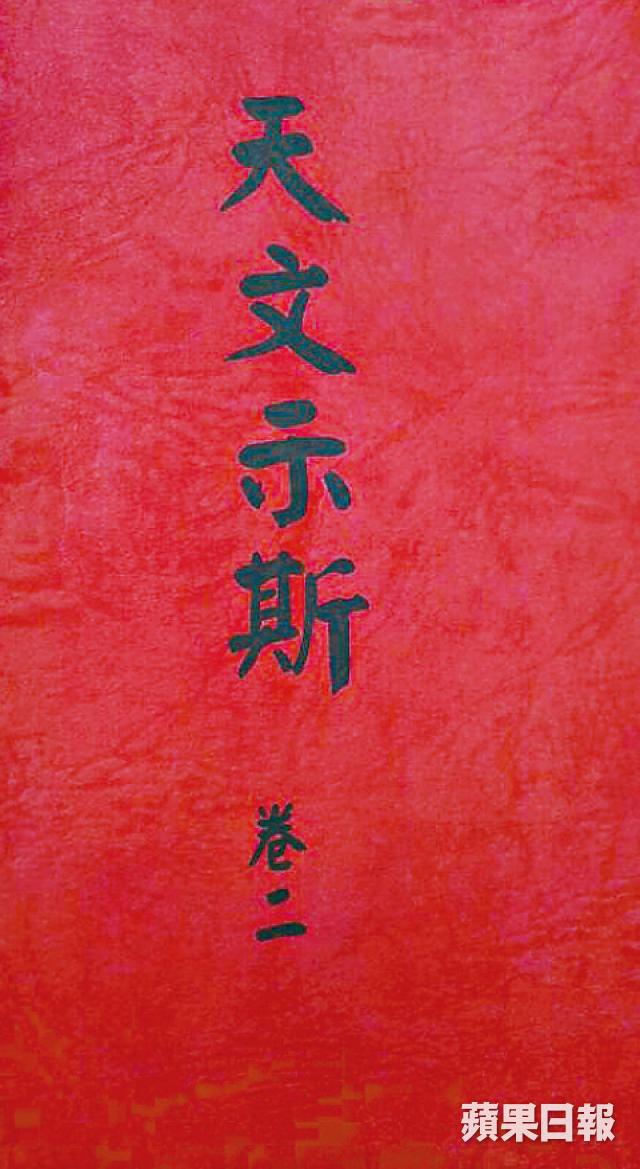 天文示斯
卷二
蘋果日報